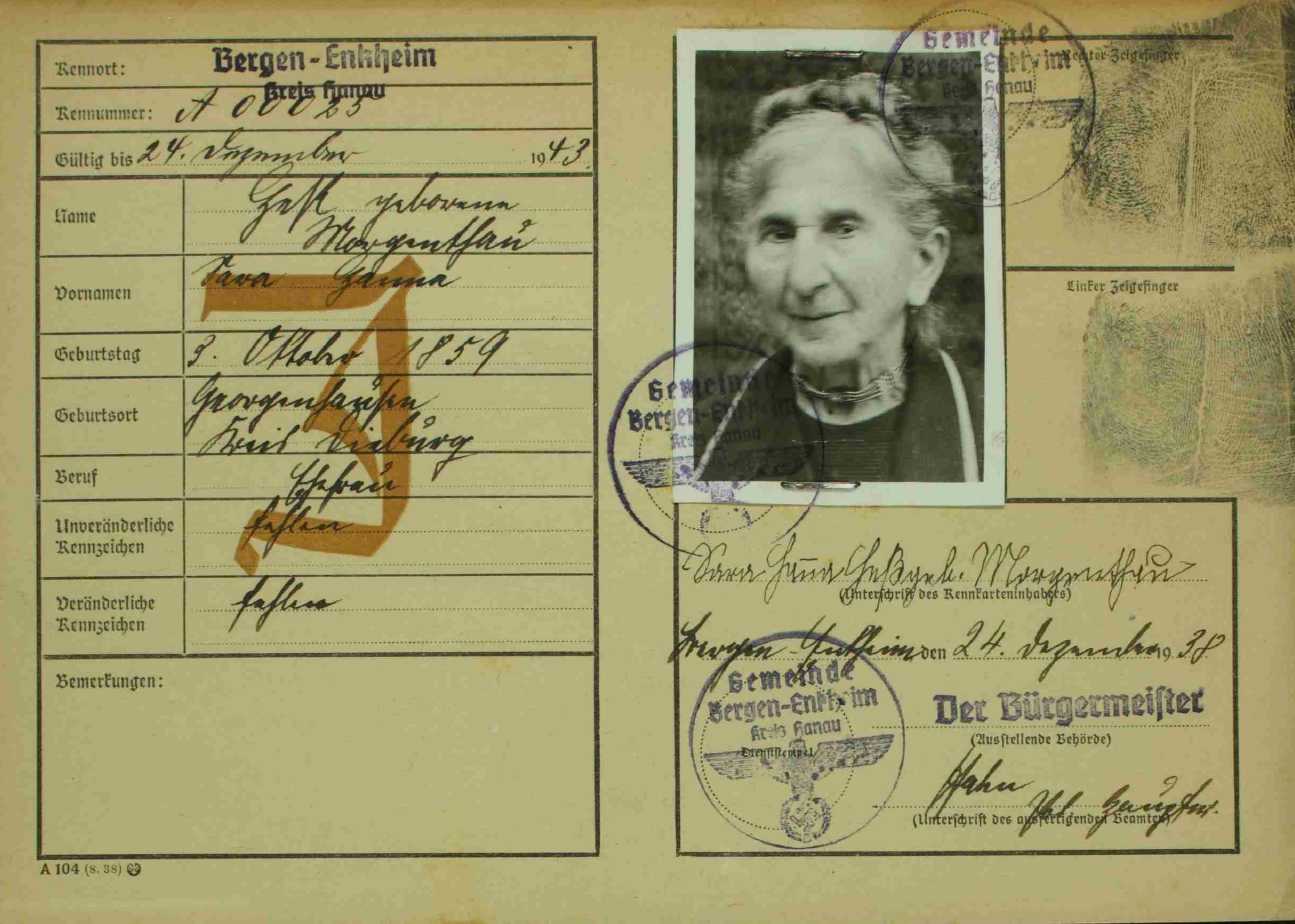 Kennort:
Bergen-Enkheim
Kreis Hanau
Kennummer: A 00025
Gültig bis 24. Dezember 1943
Name
Heß geborene
Morgenthau
Vornamen
Sara Hanna
Geburtstag
3. Oktober 1859
Geburtsort
Georgenhausen
Kreis Dieburg
Beruf
Ehefrau
Unveränderliche
Kennzeichen
fehlen
Veränderliche
Kennzeichen
fehlen
J
Bemerkungen:
A 104 (8. 38)
Gemeinde
Bergen-Enkheim
Kreis Hanau
Rechter Zeigefinger
Linker Zeigefinger
Gemeinde
Bergen-Enkheim
Kreis Hanau
Sara Hanna Heß geb. Morgenthau
(Unterschrift des Kennkarteninhabers)
Bergen-Enkheim den 24. Dezember 1938
Gemeinde
Bergen-Enkheim
Kreis Hanau
Dienststempel
Der Bürgermeister
(Ausstellende Behörde)
Hahn
(Unterschrift des ausfertigenden Beamten)